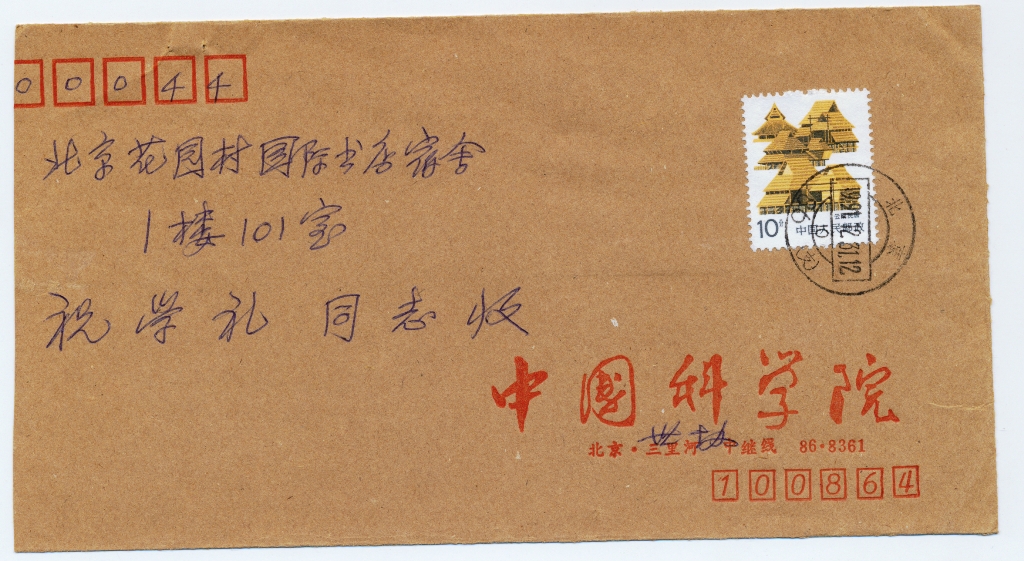 00044
北京花园村国际书店宿舍
1楼101室
祝学礼 同志收
10分
中国人民邮政
北京
中国科学院
北京·三里河 中继线 86·8361
世协
100864